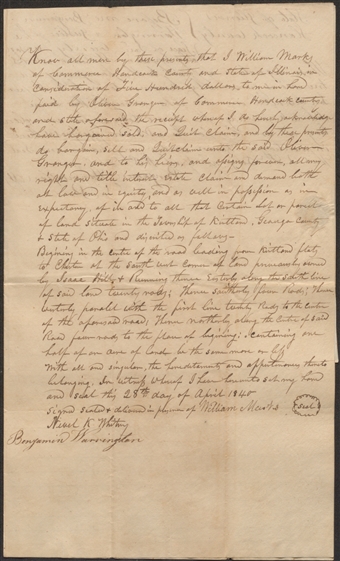 Know all men by these presents, that I William Marks
of Commerce Handcock Count and State of Illinois, in
consideration of Five Hundrid dollars, to me in hand
paid by Oliver Granger of Commerce Handcock county
and State aforesaid, the receipt whereof I do hereby acknowledge
have bargained, sold, and Quit Claim, and by these presents
do bargain, sell and Quit claim unto the said Oliver
Granger, and to his heirs, and assigns forever, all my
right and title interest, Estate Claim and demand both
at law and in equity, and as well in possession as in
expectancy, of in and to all that Certain Lot or parcel
of land situate in the Township of Kirtland, Geauga County
& State of Ohio and discribed as follows
Begining in the centre of the road leading from Kirtland flats
to Chester at the South East Corner of Land
by Isaac & Running thence Easterly along the South line
of said land twenty rods; thence southerly four Rods; thence
westerly paralel with the first line twenty Rods to the center
of the aforesaid road; thence northerly along the centre of said
Road four rods to the place of begining; containing one
half of an acre of land be the same more or less
With all and singular, the hereditaments and appurtenances thereto
belonging. In witness whereof I have hereunto set my hand
and seal this 28th day of April 1840
Signed Sealed & delivered in presence of William Marks
Seal
K Whitney
Benjamin Warrington